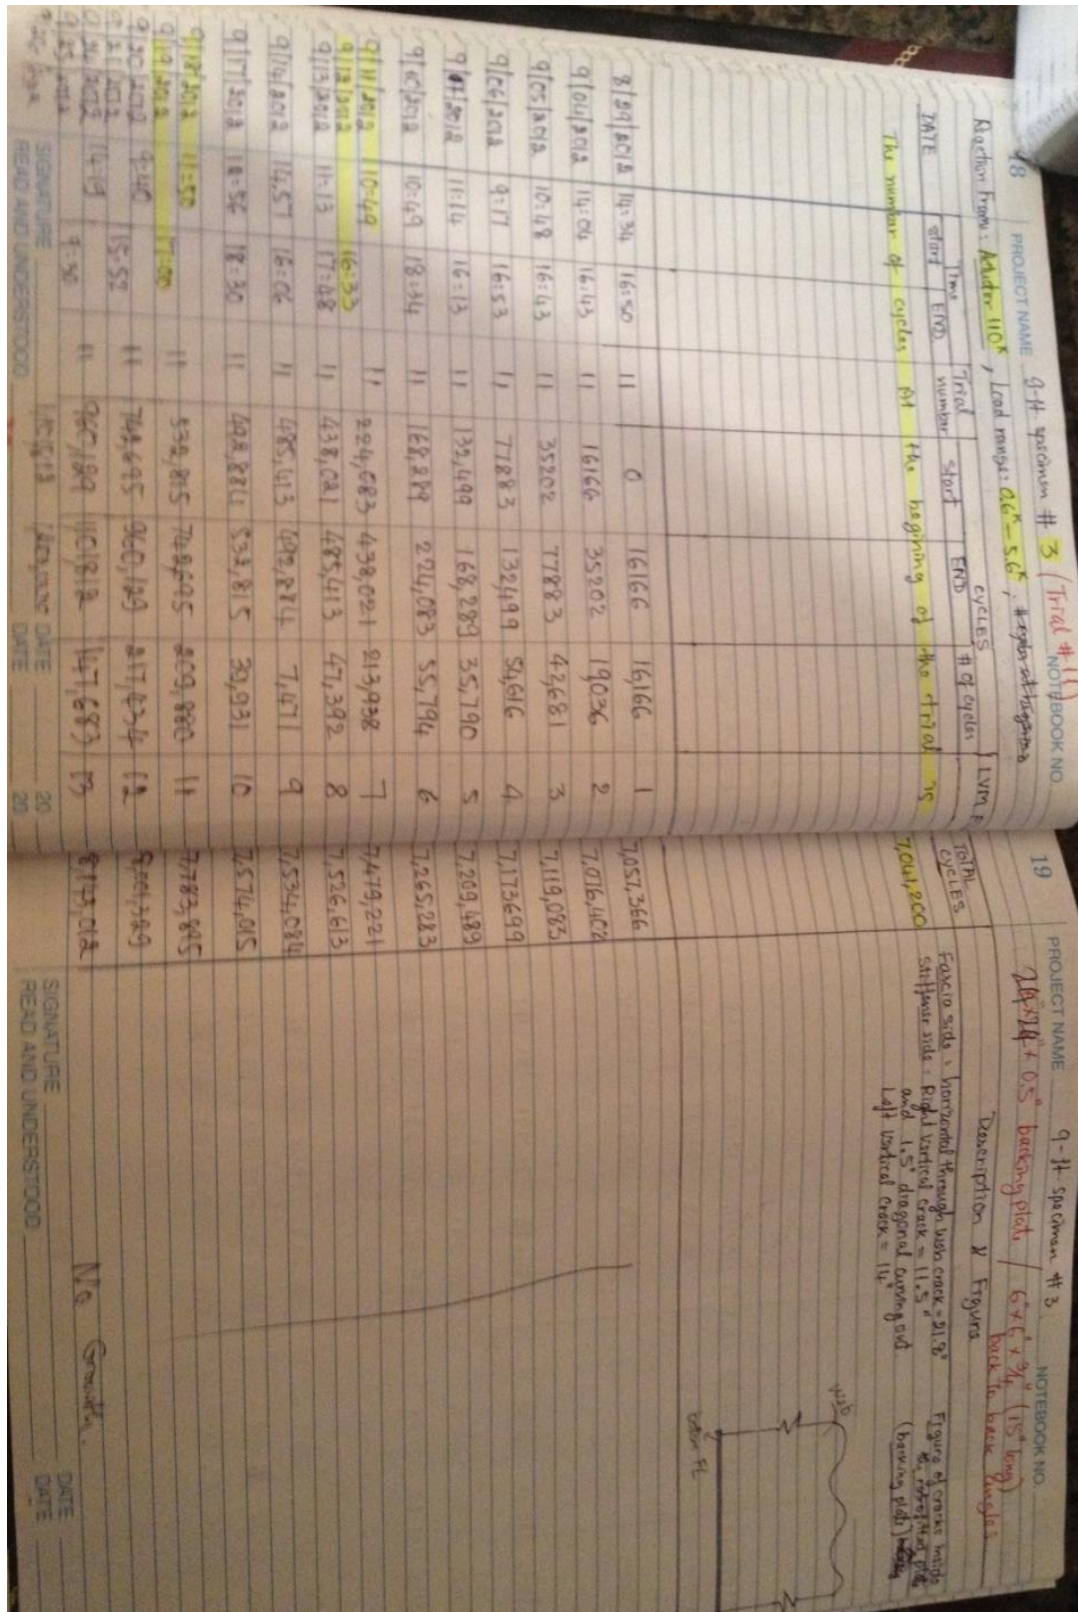 18 PROJECT NAME 9-ft specimen # 3 (Trial # 11) NOTEBOOK NO.
Reaction Frame: 110ᴷ, Load range: 0.6ᴷ - 5.6ᴷ,
DATE Time Trial number cycles # of cycles LVM TOTAL CYCLES
start END start END
The number of cycles at the begining of the trial is 7,041,200
8/29/2012 14:34 16:50 11 0 16166 16,166 1 7,057,366
9/04/2012 14:04 16:43 11 16166 35202 19,036 2 7,076,402
9/05/2012 10:48 16:43 11 35202 77883 42,681 3 7,119,083
9/06/2012 9:17 16:53 11 77883 132,499 54,616 4 7,173,699
9/07/2012 11:14 16:13 11 132,499 168,289 35,790 5 7,209,489
9/10/2012 10:49 18:34 11 168,289 224,083 55,794 6 7,265,283
9/11/2012 10:49
9/12/2012 16:33 11 224,083 438,021 213,938 7 7,479,221
9/13/2012 11:13 17:48 11 438,021 485,413 47,392 8 7,526,613
9/14/2012 14:57 16:06 11 485,413 492,884 7,471 9 7,534,084
9/17/2012 12:56 18:30 11 492,884 532,815 39,931 10 7,574,015
9/18/2012 11:50
9/19/2012 17:00 11 532,815 742,695 209,880 11 7,783,895
9/20/2012 9:40
9/21/2012 15:52 11 742,695 960,129 217,434 12 8,001,329
9/24/2012 14:19
9/25/2012 9:30 11 960,129 147,683 13
SIGNATURE DATE 20
READ AND UNDERSTOOD DATE 20
19 PROJECT NAME 9-ft specimen #3 NOTEBOOK NO.
24"x24"x 0.5" backing plate / 6"x6"x3/4" (15" long)
back to back angles
Description & Figure
Fascia side: horizontal through web crack = 21.8"
Stiffener side: Right vertical crack = 11.5"
and 1.5" diagonal curving out
Left vertical crack = 14"
Figure of cracks inside
(backing plate)
Web
bottom FL
No Growth.
SIGNATURE DATE
READ AND UNDERSTOOD DATE